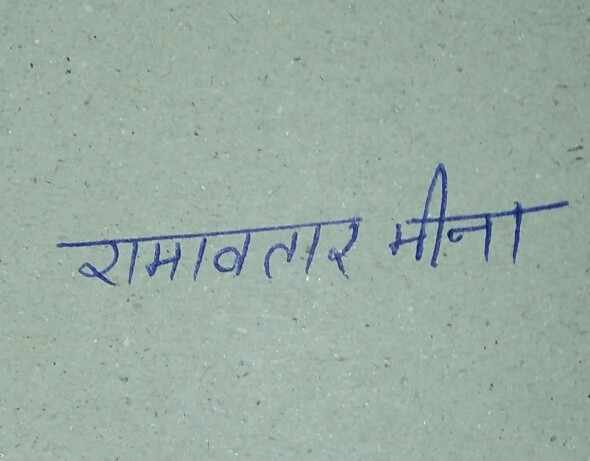 रामावतार मीना